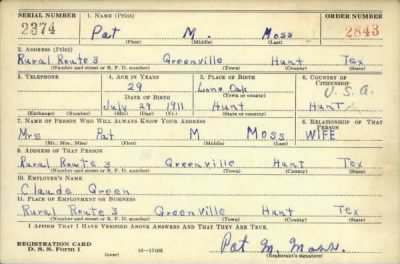 SERIAL NUMBER 1. NAME (Print) ORDER NUMBER
2374 Pat M. Moss 2843
(First) (Middle) (Last)
2. ADDRESS (Print)
Rural Route 3 Greenville Hunt Tex
(Number and street or R. F. D. number) (Town) (County) (State)
3. TELEPHONE 4. AGE IN YEARS 5. PLACE OF BIRTH 6. COUNTRY OF CITIZENSHIP
29 Lone Oak U.S.A.
DATE OF BIRTH (Town or county)
July 29 1911 Hunt Hunt
(Exchange) (Number) (Mo.) (Day) (Yr.) (State or country)
7. NAME OF PERSON WHO WILL ALWAYS KNOW YOUR ADDRESS 8. RELATIONSHIP OF THAT PERSON
Mrs Pat M Moss WIFE
(Mr., Mrs., Miss) (First) (Middle) (Last)
9. ADDRESS OF THAT PERSON
Rural Route 3 Greenville Hunt Tex
(Number and street or R. F. D. number) (Town) (County) (State)
10. EMPLOYER'S NAME
Claude Green
11. PLACE OF EMPLOYMENT OR BUSINESS
Rural Route 3 Greenville Hunt Tex
(Number and street or R. F. D. number) (Town) (County) (State)
I AFFIRM THAT I HAVE VERIFIED ABOVE ANSWERS AND THAT THEY ARE TRUE.
REGISTRATION CARD Pat M. Moss
D. S. S. Form 1 (over) (Registrant's signature)